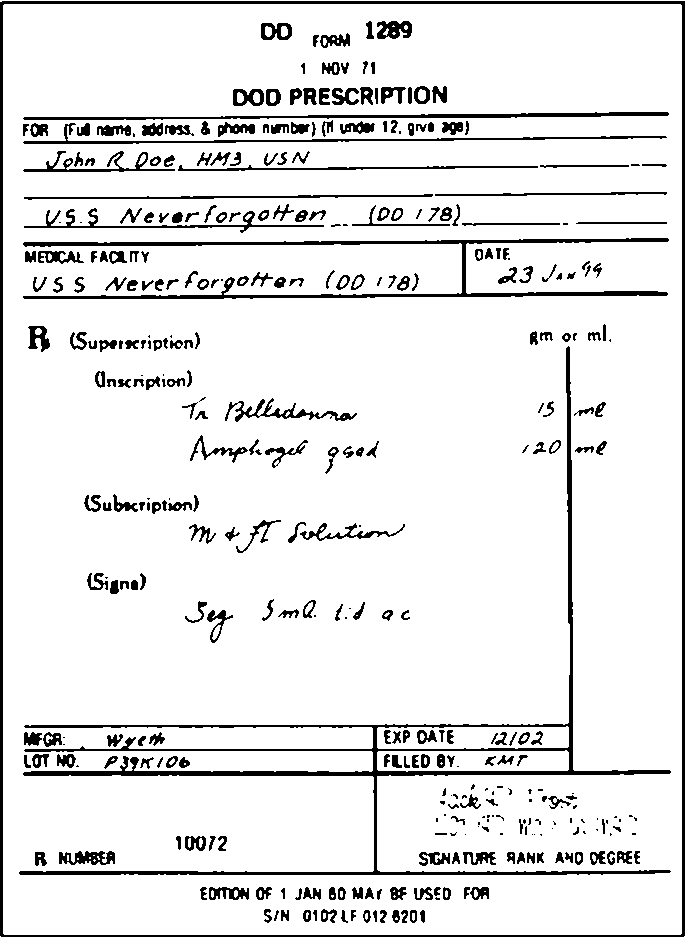 DD FORM 1289
1 NOV 71
DOD PRESCRIPTION
FOR (Full name, address, & phone number) (If under 12, give age)
John R Doe, HM3, USN
U.S.S Neverforgotten (DD 178)
MEDICAL FACILITY
USS Neverforgotten (DD 178)
DATE
23 Jan 99
℞ (Superscription)
gm or ml.
(Inscription)
Tr Belladonna 15 ml
Amphogel qsad 120 ml
(Subscription)
M & Ft Solution
(Signa)
Sig 5ml t.i.d ac
MFGR: Wyeth
EXP DATE 12/02
LOT NO. P39K106
FILLED BY. KMT
Jack Frost
℞ NUMBER 10072
SIGNATURE RANK AND DEGREE
EDITION OF 1 JAN 60 MAY BE USED FOR
S/N 0102 LF 012 6201